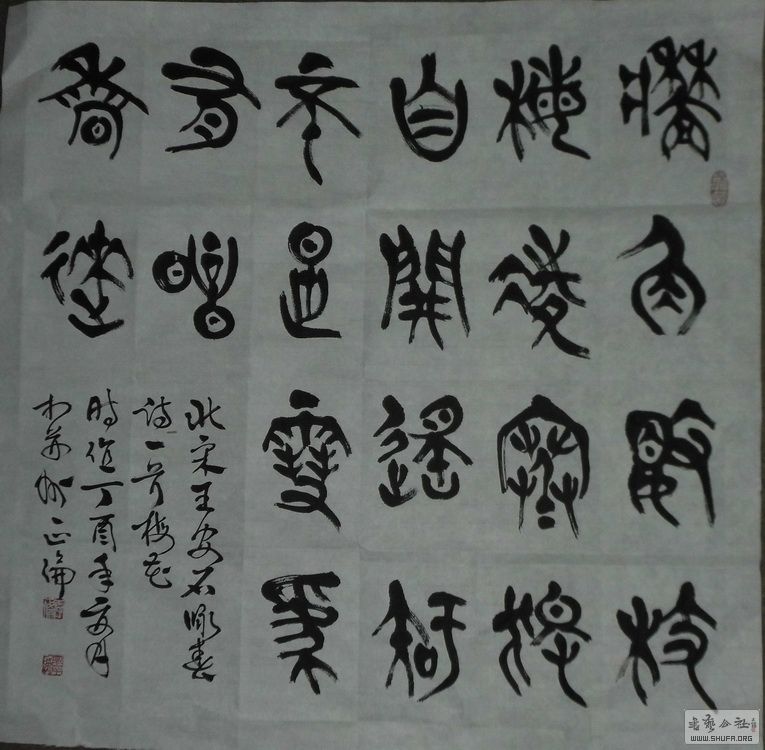 牆角數枝
梅凌寒獨
自開遙知
不是雪為
有暗
香來
北宋王安石咏春
诗一首梅花
時值丁酉年夏月
州正倫
书艺公社
WWW.SHUFA.ORG